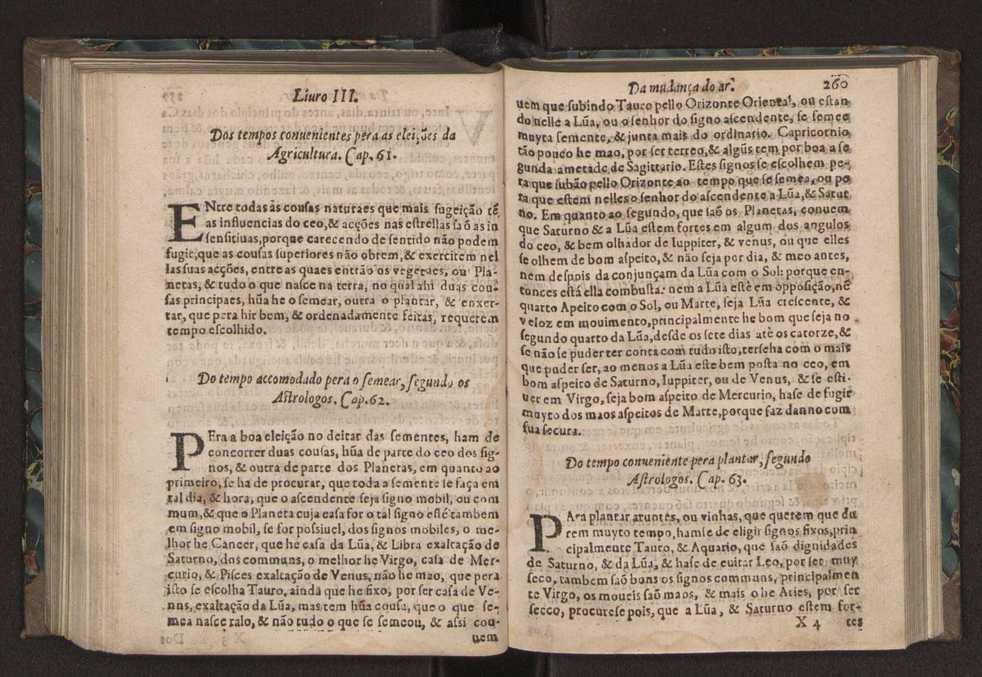 Liuro III.
Dos tempos conuenientes pera as eleições da
Agricultura. Cap. 61.
ENtre todas às cousas naturaes que mais sugeição tẽ
as influencias do ceo, & acções nas estrellas saõ as in
sensitiuas, porque carecendo de sentido não podem
fugir, que as cousas superiores não obrem, & exercitem nel
las suas acções, entre as quaes entrão os vegetaes, ou Pla-
netas, & tudo o que nasce na terra, no qual ahi duas cou-
sas principaes, hũa he o semear, outra o plantar, & enxer-
tar, que pera hir bem, & ordenadamente feitas, requerem
tempo escolhido.
Do tempo accomodado pera o semear, segundo os
Astrologos. Cap. 62.
PEra a boa eleição no deitar das sementes, ham de
concorrer duas cousas, hũa de parte do ceo dos sig-
nos, & outra de parte dos Planetas, em quanto ao
primeiro, se ha de procurar, que toda a semente se faça em
tal dia, & hora, que o ascendente seja signo mobil, ou com
mum, & que o Planeta cuja casa for o tal signo esté tambem
em signo mobil, se for possiuel, dos signos mobiles, o me-
lhor he Cancer, que he casa da Lũa, & Libra exaltação de
Saturno, dos communs, o melhor he Virgo, casa de Mer-
curio, & Pisces exaltação de Venus, não he mao, que pera
isto se escolha Tauro, ainda que he fixo, por ser casa de Ve-
nus, exaltação da Lũa, mas tem hũa cousa, que o que se-
mea nasce ralo, & não tudo o que se semeou, & assi cou-
uem
Da mudança do ar.
260
uem que subindo Tauro pello Orizonte Oriental, ou estan
do nelle a Lũa, ou o senhor do signo ascendente, se semee
muyta semente, & junta mais do ordinario. Capricornio
tão pouco he mao, por ser terreo, & algũs tem por boa a se
gunda ametade de Sagittario. Estes signos se escolhem pe-
ra que subão pello Orizonte ao tempo que se semea, ou pe
ra que estem nelles o senhor do ascendente a Lũa, & Satur
no. Em quanto ao segundo, que saõ os Planetas, conuem
que Saturno & a Lũa estem fortes em algum dos angulos
do ceo, & bem olhador de Iuppiter, & venus, ou que elles
se olhem de bom aspeito, & não seja por dia, & meo antes,
nem despois da conjunçam da Lũa com o Sol: porque en-
tonces está ella combusta: nem a Lũa estè em opposição, nẽ
quarto Apeito com o Sol, ou Marte, seja Lũa crescente, &
veloz em mouimento, principalmente he bom que seja no
segundo quarto da Lũa, desde os sete dias atè os catorze, &
se não se puder ter conta com tudo isto, terseha com o mais
que puder ser, ao menos a Lũa este bem posta no ceo, em
bom aspeito de Saturno, Iuppiter, ou de Venus, & se esti-
uer em Virgo, seja bom aspeito de Mercurio, hase de fugir
muyto dos maos aspeitos de Marte, porque faz danno com
sua secura.
Do tempo conueniente pera plantar, segundo
Astrologos. Cap. 63.
PAra plantar aruores, ou vinhas, que querem que du
rem muyto tempo, hamse de eligir signos fixos, prin
cipalmente Tauro, & Aquario, que saõ dignidades
de Saturno, & da Lũa, & hase de euitar Leo, por ser muy
seco, tambem saõ bons os signos communs, principalmen
te Virgo, os moueis saõ maos, & mais o he Aries, por ser
secco, procurese pois, que a Lũa, & Saturno estem for-
X 4
tes